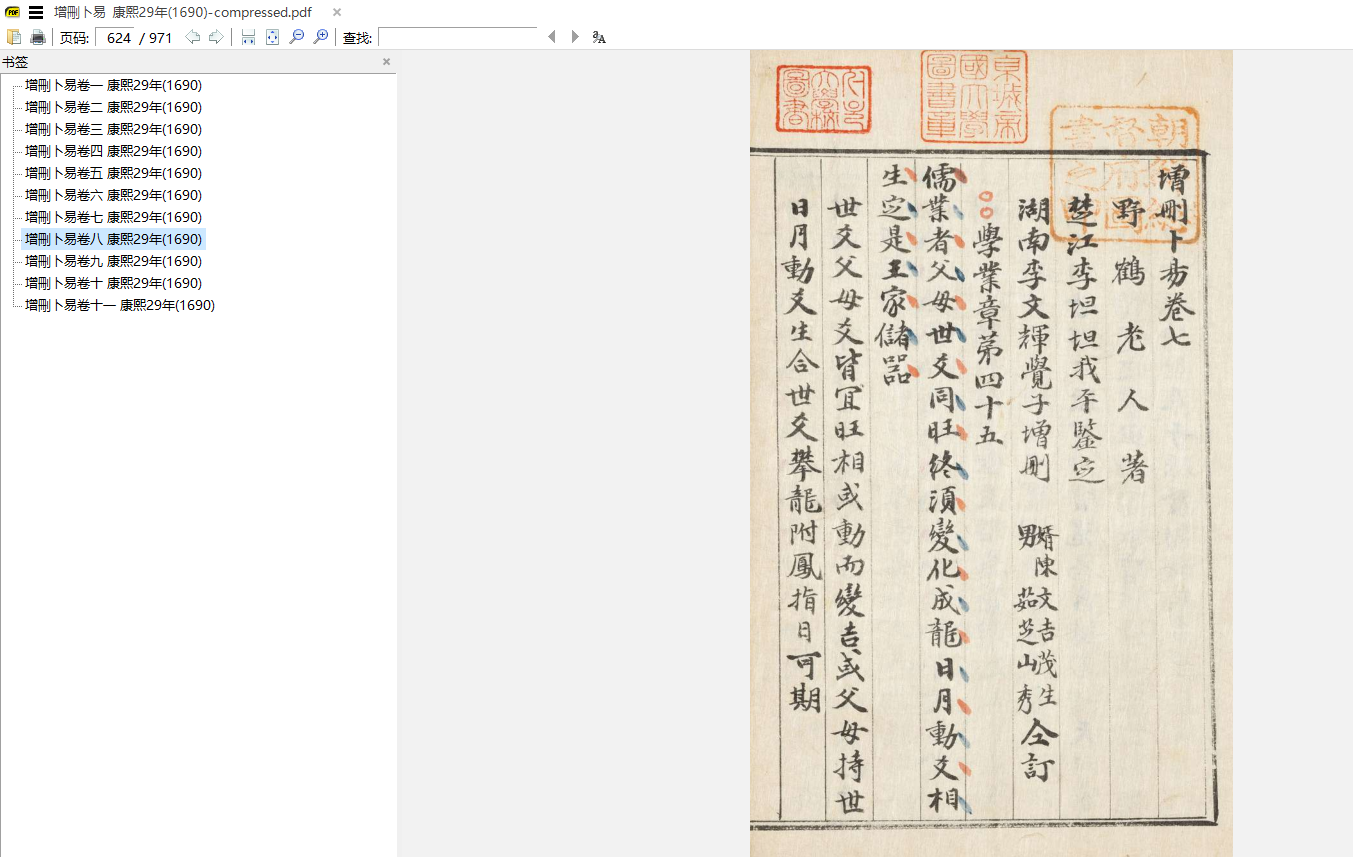 增刪卜易 康熙29年(1690)-compressed.pdf
页码: 624 / 971
查找:
书签
增刪卜易卷一 康熙29年(1690)
增刪卜易卷二 康熙29年(1690)
增刪卜易卷三 康熙29年(1690)
增刪卜易卷四 康熙29年(1690)
增刪卜易卷五 康熙29年(1690)
增刪卜易卷六 康熙29年(1690)
增刪卜易卷七 康熙29年(1690)
增刪卜易卷八 康熙29年(1690)
增刪卜易卷九 康熙29年(1690)
增刪卜易卷十 康熙29年(1690)
增刪卜易卷十一 康熙29年(1690)
增刪卜易卷七
野鶴老人著
楚江李坦坦我平鑒定
湖南李文輝覺子增刪 婿陳文吉茂生 男茹芝山秀 仝訂
學業章第四十五
儒業者父母世爻同旺終須變化成龍日月動爻相
生定是王家儲器
世爻父母爻皆宜旺相或動而變吉或父母持世
日月動爻生合世爻攀龍附鳳指日可期
京城帝國大學圖書章
朝鮮總督府圖書之印